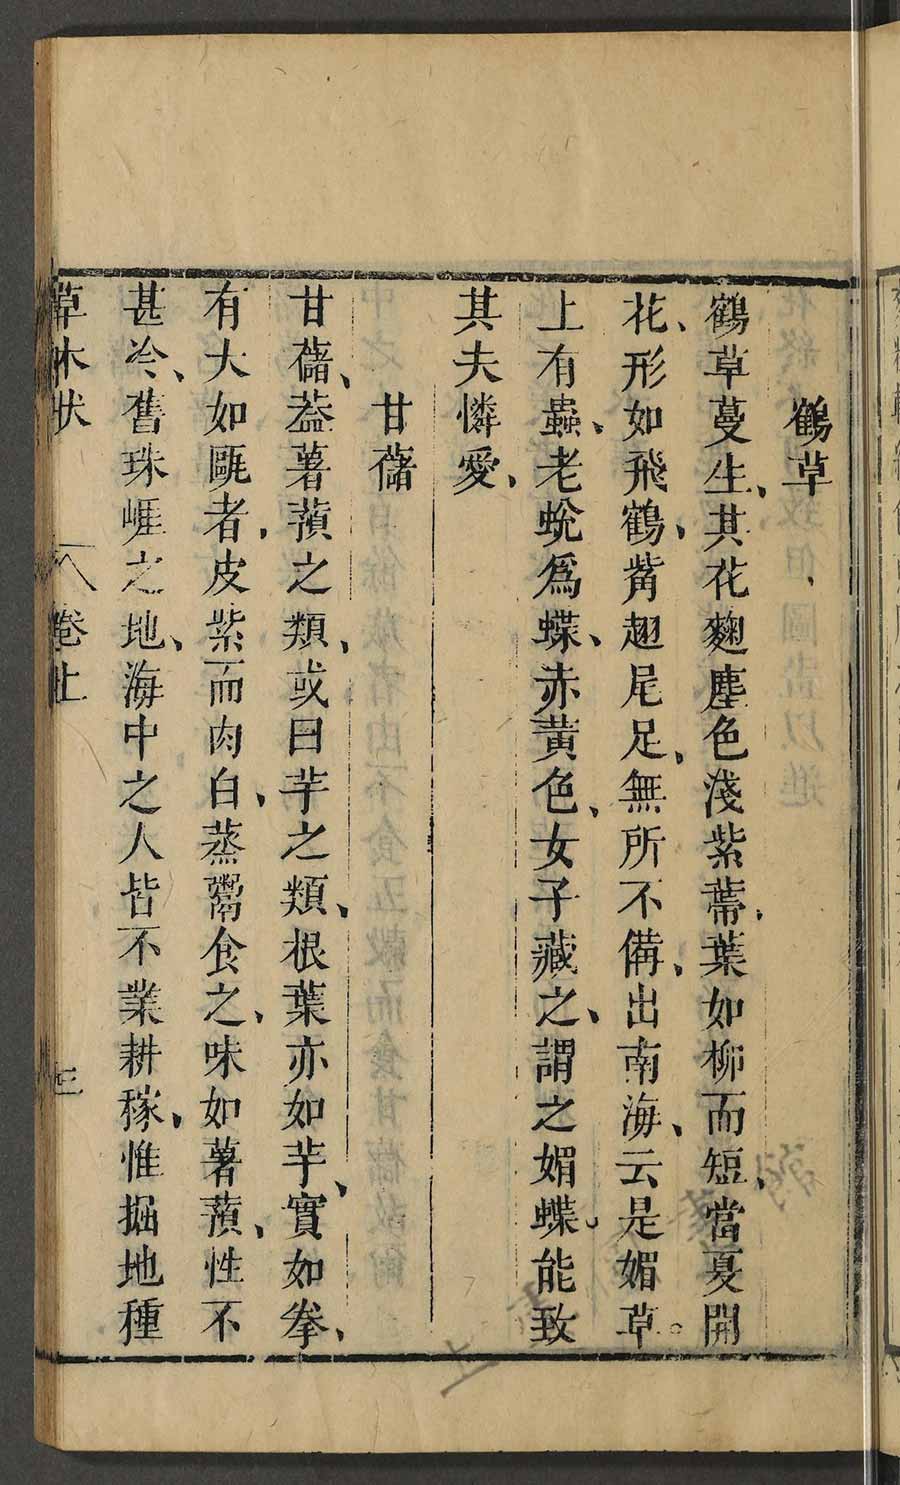 鶴草
鶴草蔓生、其花麴塵色淺紫蔕、葉如柳而短、當夏開
花、形如飛鶴、觜翅尾足、無所不備、出南海、云是媚草。
上有蟲、老蛻爲蝶、赤黃色、女子藏之、謂之媚蝶、能致
其夫憐愛、
甘藷
甘藷、葢薯蕷之類、或曰芋之類、根葉亦如芋、實如拳、
有大如甌者、皮紫而肉白、蒸鬻食之、味如薯蕷、性不
甚冷、舊珠崖之地、海中之人皆不業耕稼、惟掘地種
草木狀 卷上 三